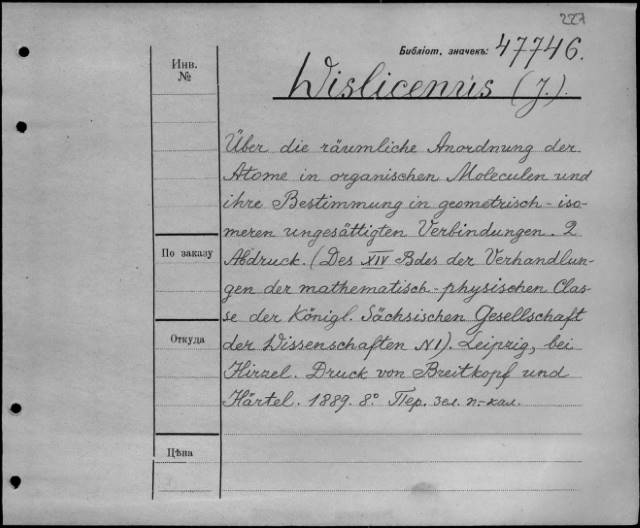 227
Библіот. значекъ: 47746.
Инв.
№
Wislicenus (J.).
Über die räumliche Anordnung der
Atome in organischen Moleculen und
ihre Bestimmung in geometrisch-iso-
meren ungesättigten Verbindungen. 2
По заказу
Abdruck. (Des XIV Bdes der Verhandlun-
gen der mathematisch-physischen Clas-
se der Königl. Sächsischen Gesellschaft
Откуда
der Wissenschaften N1). Leipzig, bei
Hirzel. Druck von Breitkopf und
Härtel. 1889. 8° Пер. зел. п.-кал.
Цѣна